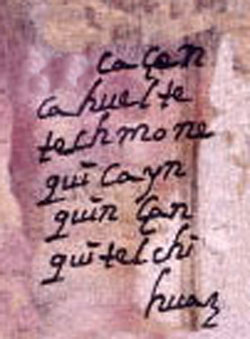 ca çan
ca huel te
tech mo ne
quī ca yn
quin çan
quī tel chi
huaz